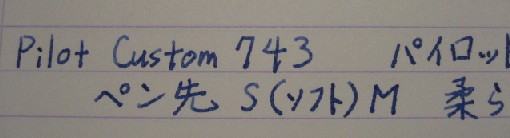 Pilot Custom 743 パイロッ
ペン先 S(ソフト)M 柔ら